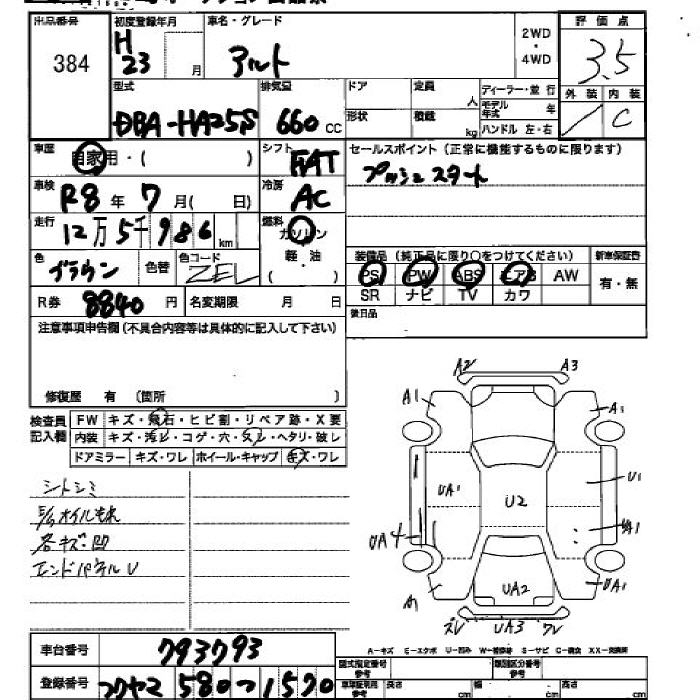 出品番号
384
初度登録年月
H
23 月
車名・グレード
アルト
2WD
・
4WD
評価点
3.5
外装 内装
/ C
型式
DBA-HA25S
排気量
660 CC
ドア
定員
人
形状
積載
kg
ディーラー・並行
モデル年式 年
ハンドル 左・右
車歴
自家用・( )
シフト
FAT
セールスポイント(正常に機能するものに限ります)
プッシュスタート
車検
R8年7月( 日)
冷房
AC
走行
12万5千986km
燃料
ガソリン
軽・油
( )
色
ブラウン
色替
色コード
ZEL
装備品(純正品に限り○をつけてください)
新車保証書
PS PW ABS エアB AW
有・無
SR ナビ TV カワ
R券 8840円
名変期限 月 日
後日品
注意事項申告欄(不具合内容等は具体的に記入して下さい)
修復歴 有 (箇所 )
検査員
記入欄
FW キズ・飛石・ヒビ割・リペア跡・X要
内装 キズ・汚レ・コゲ・穴・スレ・ヘタリ・破レ
ドアミラー キズ・ワレ ホイール・キャップ キズ・ワレ
シトシミ
オイルもれ
各キズ・凹
エンドパネルU
A2 A3
A1 A1
UA1 U2 U1
UA4 UA1
A1 UA2 UA1
ズレ UA3 ワレ
A-キズ E-エクボ U-凹み W-補修跡 S-サビ C-腐食 XX-交換済
車台番号
793793
登録番号
フクヤマ 580 つ 1570
型式指定番号
参考
類別区分番号
参考
長さ cm
幅 cm
高さ cm